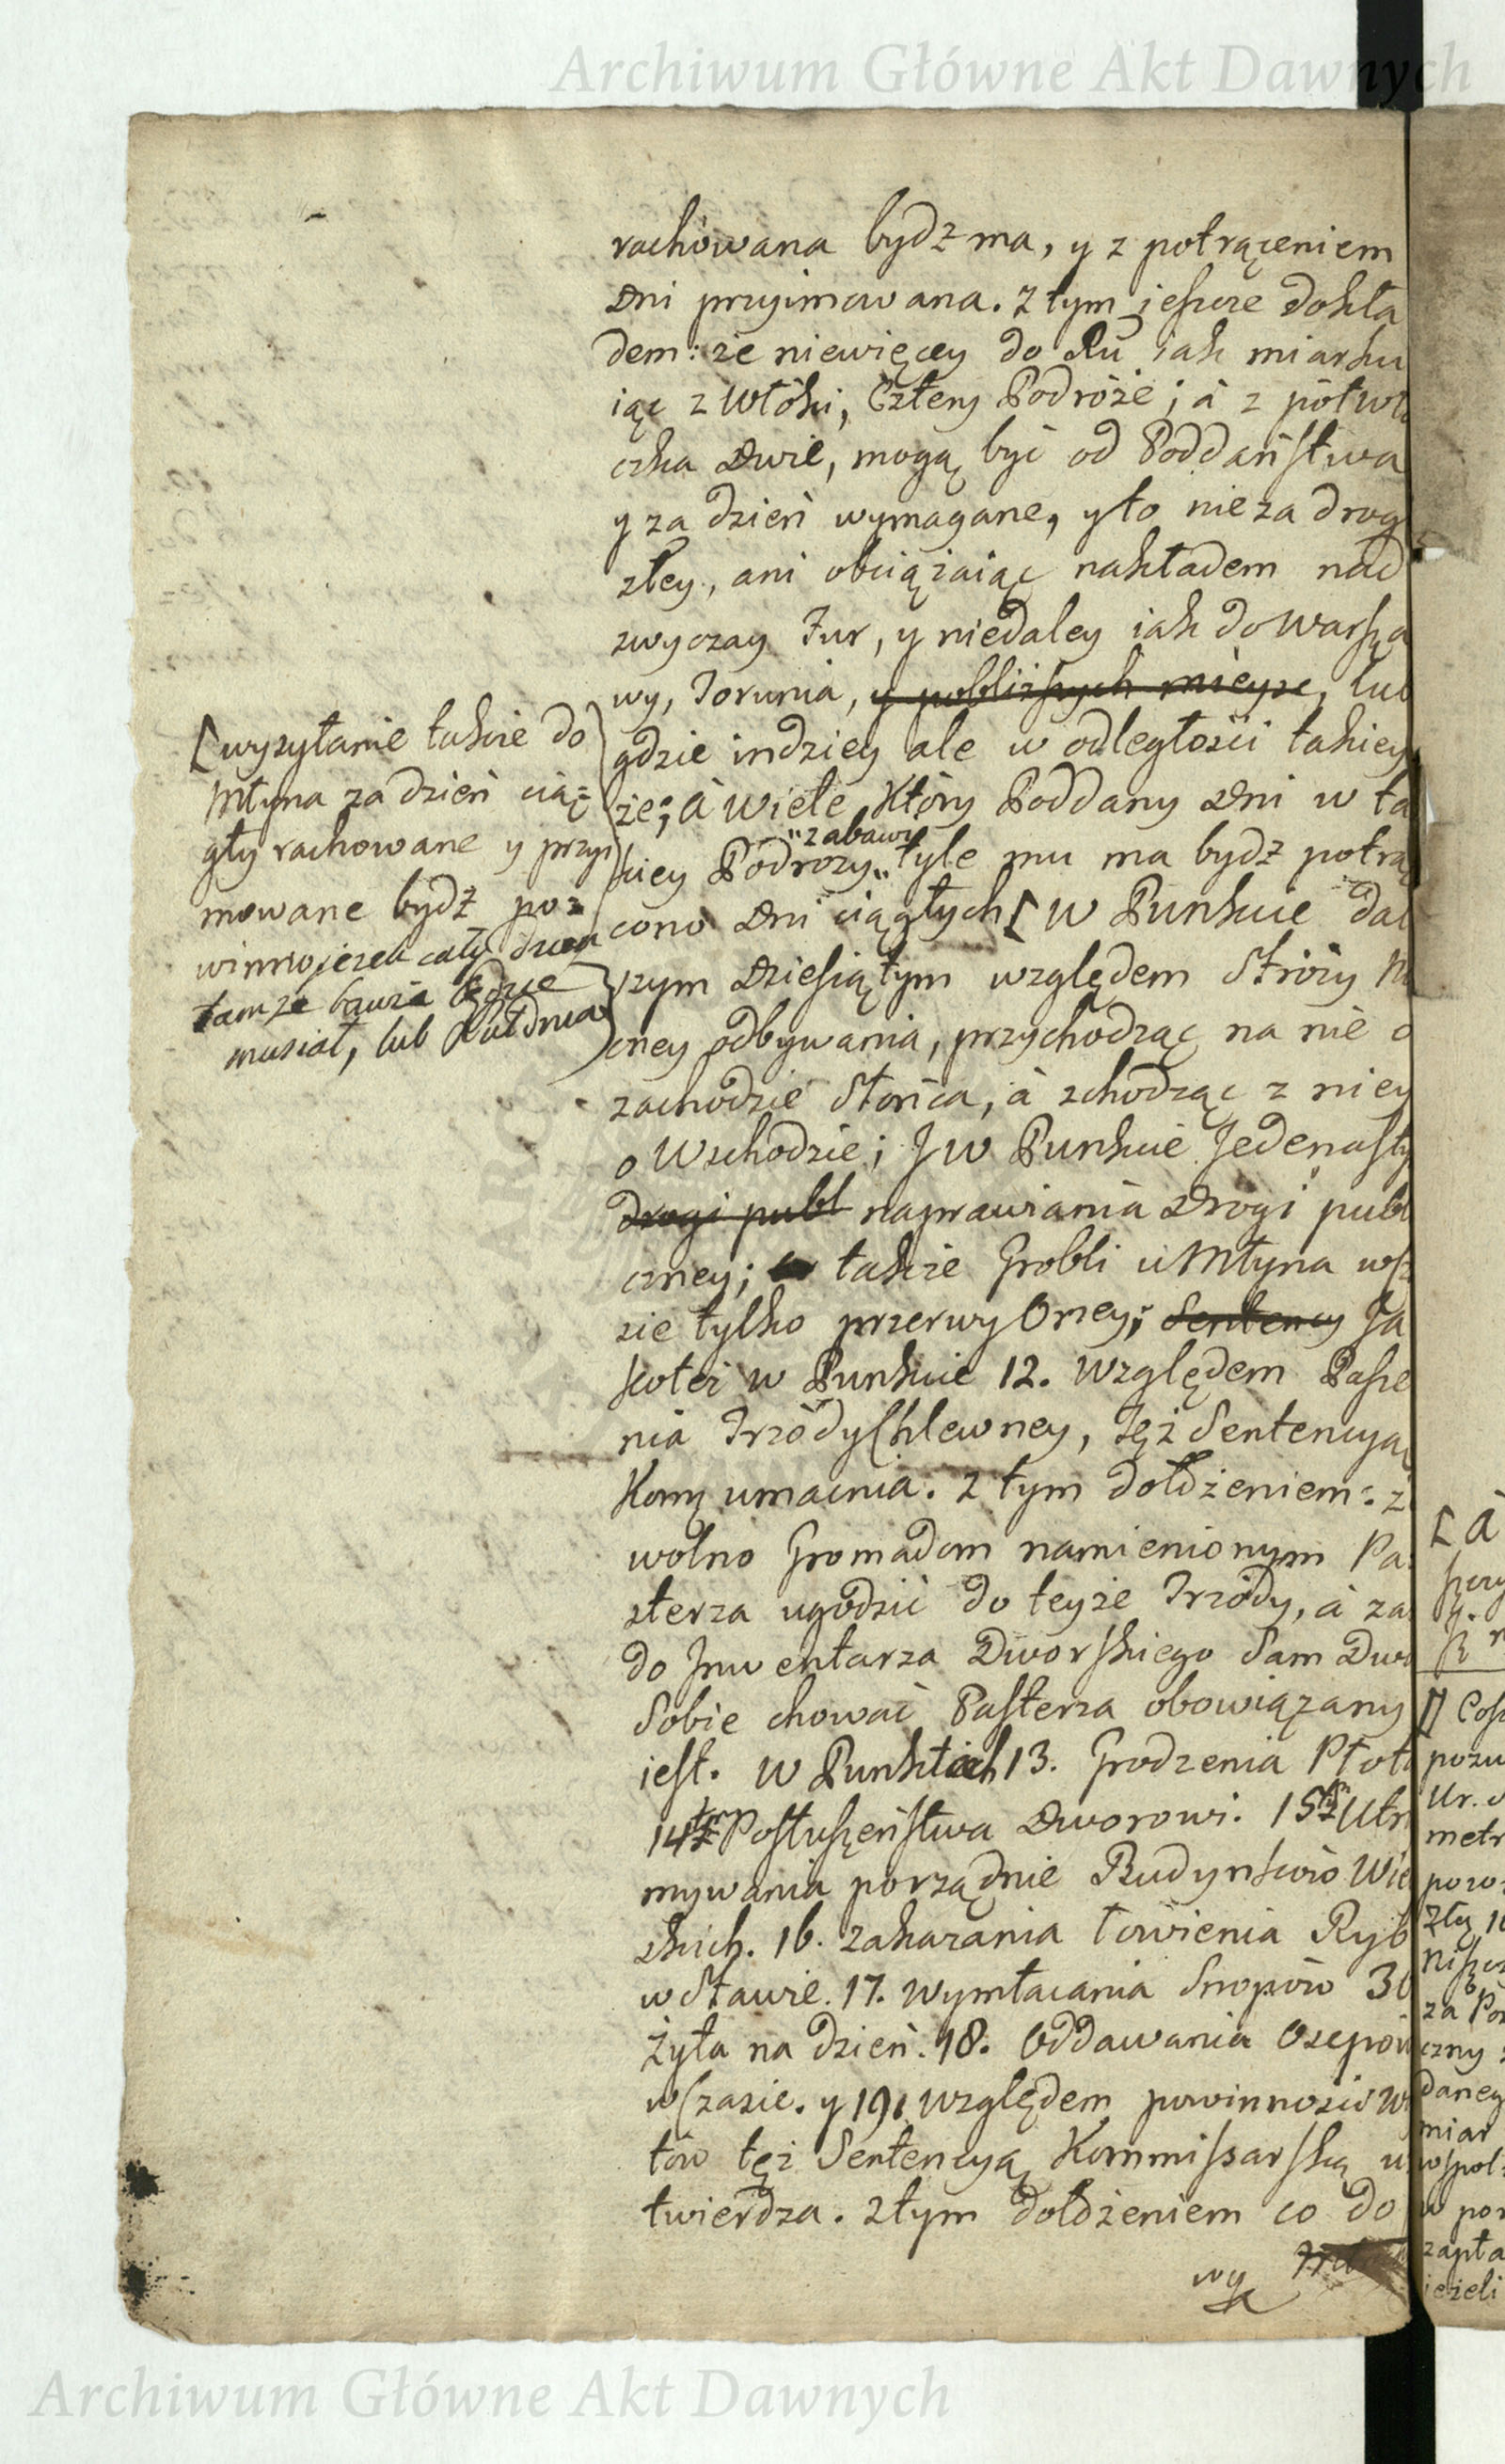 Archiwum Główne Akt Dawnych
rachowana bydź ma, y z potrąceniem
Dni przyimowana. Z tym ieszcze dokła
dem: że niewięcey do Ru iak miarku
iąc z Włóki, Cztery Podróże; à z półwło
czka Dwie, mogą być od Poddaństwa
y za dzień wymagane, y to nie za drog
złey, ani obciążaiąc nakładem nad
zwyczay Fur, y niedaley iak do Warsza
wy, Torunia, y pobliższych mieysc, lub
gdzie indziey ale w odległości takiey
że; à Wiele Który Poddany Dni w ta
kiey Podrozy „zabawi„ tyle mu ma bydź potrą
cono Dni ciągłych [ W Punkcie dal
szym Dziesiątym względem Stróży No
cney odbywania, przychodząc na nie o
zachodzie Słońca, à schodząc z niey
o Wschodzie; J w Punkcie Jedenasty
drogi publ naprawiania Drogi publ
czney; także Grobli u Młyna wcza
sie tylko przerwy Oney; Sentency Ja
koteż w Punkcie 12. Względem Pasie
nia Trzody Chlewney, Tęż Sentencyą
Komą umacnia. Z tym dołożeniem: że
wolno Gromadom namienionym Pa
sterza ugodzić do teyże Trzody, à zaś
do Jnwentarza Dworskiego Sam Dwo
Sobie chować Pasterza obowiązany
iest. W Punktach 13. Grodzenia Płotó
14tym Posłuszeństwa Dworowi. 15tym Utrz
mywania porządnie Budynków Wie
skich. 16. Zakazania łowienia Ryb
w Stawie. 17. Wymłacania Snopów 30
Żyta na dzień. 18. Oddawania Osepów
w Czasie. y 19. względem powinności Wó
tów tęż Sentencyą Kommissarską u
twierdza. Z tym dołożeniem co do
wy
[wysyłanie także do
Młyna za dzień cią
gły rachowane y przyi
mowane bydź po
winno, jeżeli cały dzień
tamże bawić będzie
musiał, lub Puł dnia
[ à
pozu
Ur.
metr
powo
za
czny
daney
miar
wspol
w
zapła
ieżeli
Archiwum Główne Akt Dawnych